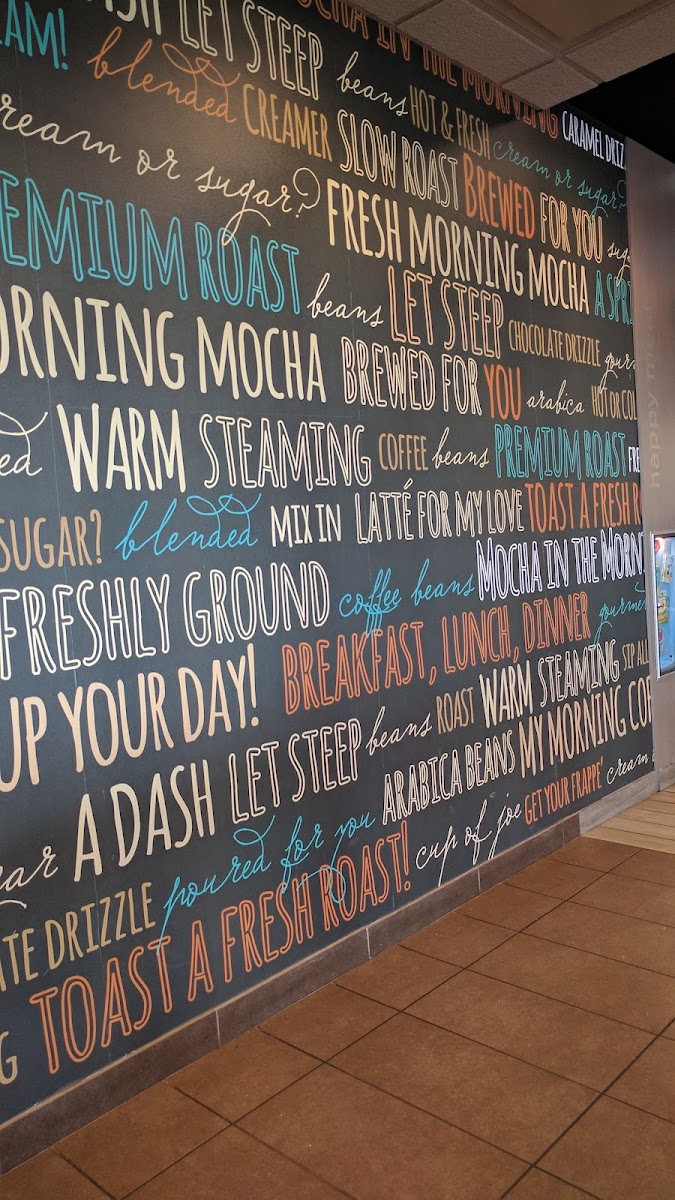 DASH LET STEEP beans HOT & FRESH cream or sugar?
MOCHA IN THE MORNING CARAMEL DRIZ
EAM! blended CREAMER SLOW ROAST BREWED FOR YOU sug
cream or sugar? FRESH MORNING MOCHA A SPRI
EMIUM ROAST beans LET STEEP CHOCOLATE DRIZZLE gour
ORNING MOCHA BREWED FOR YOU arabica HOT OR COL
ed WARM STEAMING COFFEE beans PREMIUM ROAST FRE
SUGAR? blended MIX IN LATTÉ FOR MY LOVE TOAST A FRESH R
FRESHLY GROUND coffee beans MOCHA IN THE MORN
UP YOUR DAY! BREAKFAST, LUNCH, DINNER gourmet
A DASH LET STEEP beans ROAST WARM STEAMING SIP ALL
gar poured for you ARABICA BEANS MY MORNING COF
ATE DRIZZLE TOAST A FRESH ROAST! cup of joe GET YOUR FRAPPE' cream
G
happy meal